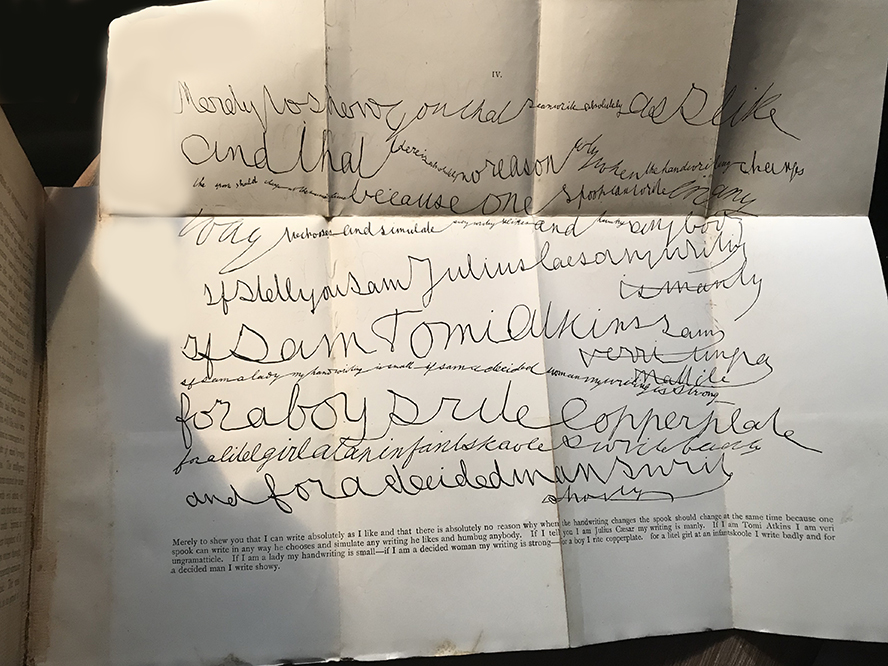 IV.
Merely to shew you that I can write absolutely as I like
and that there is absolutely no reason why when the handwriting changes
the spook should change at the same time because one spook can write in any
way he chooses and simulate any writing he likes and humbug anybody
if I tell you I am Julius Caesar my writing
is manly
If I am Tomi Atkins I am
verri ungra
mattile
if I am a lady my handwriting is small if I am a decided woman my writing is strong
for a boy I rite copperplate
for a litel girl at an infantskoole I write badly
and for a decided man I writ
showy
Merely to shew you that I can write absolutely as I like and that there is absolutely no reason why when the handwriting changes the spook should change at the same time because one
spook can write in any way he chooses and simulate any writing he likes and humbug anybody. If I tell you I am Julius Cæsar my writing is manly. If I am Tomi Atkins I am veri
ungramatticle. If I am a lady my handwriting is small—if I am a decided woman my writing is strong—for a boy I rite copperplate. for a litel girl at an infantskoole I write badly and for
a decided man I write showy.